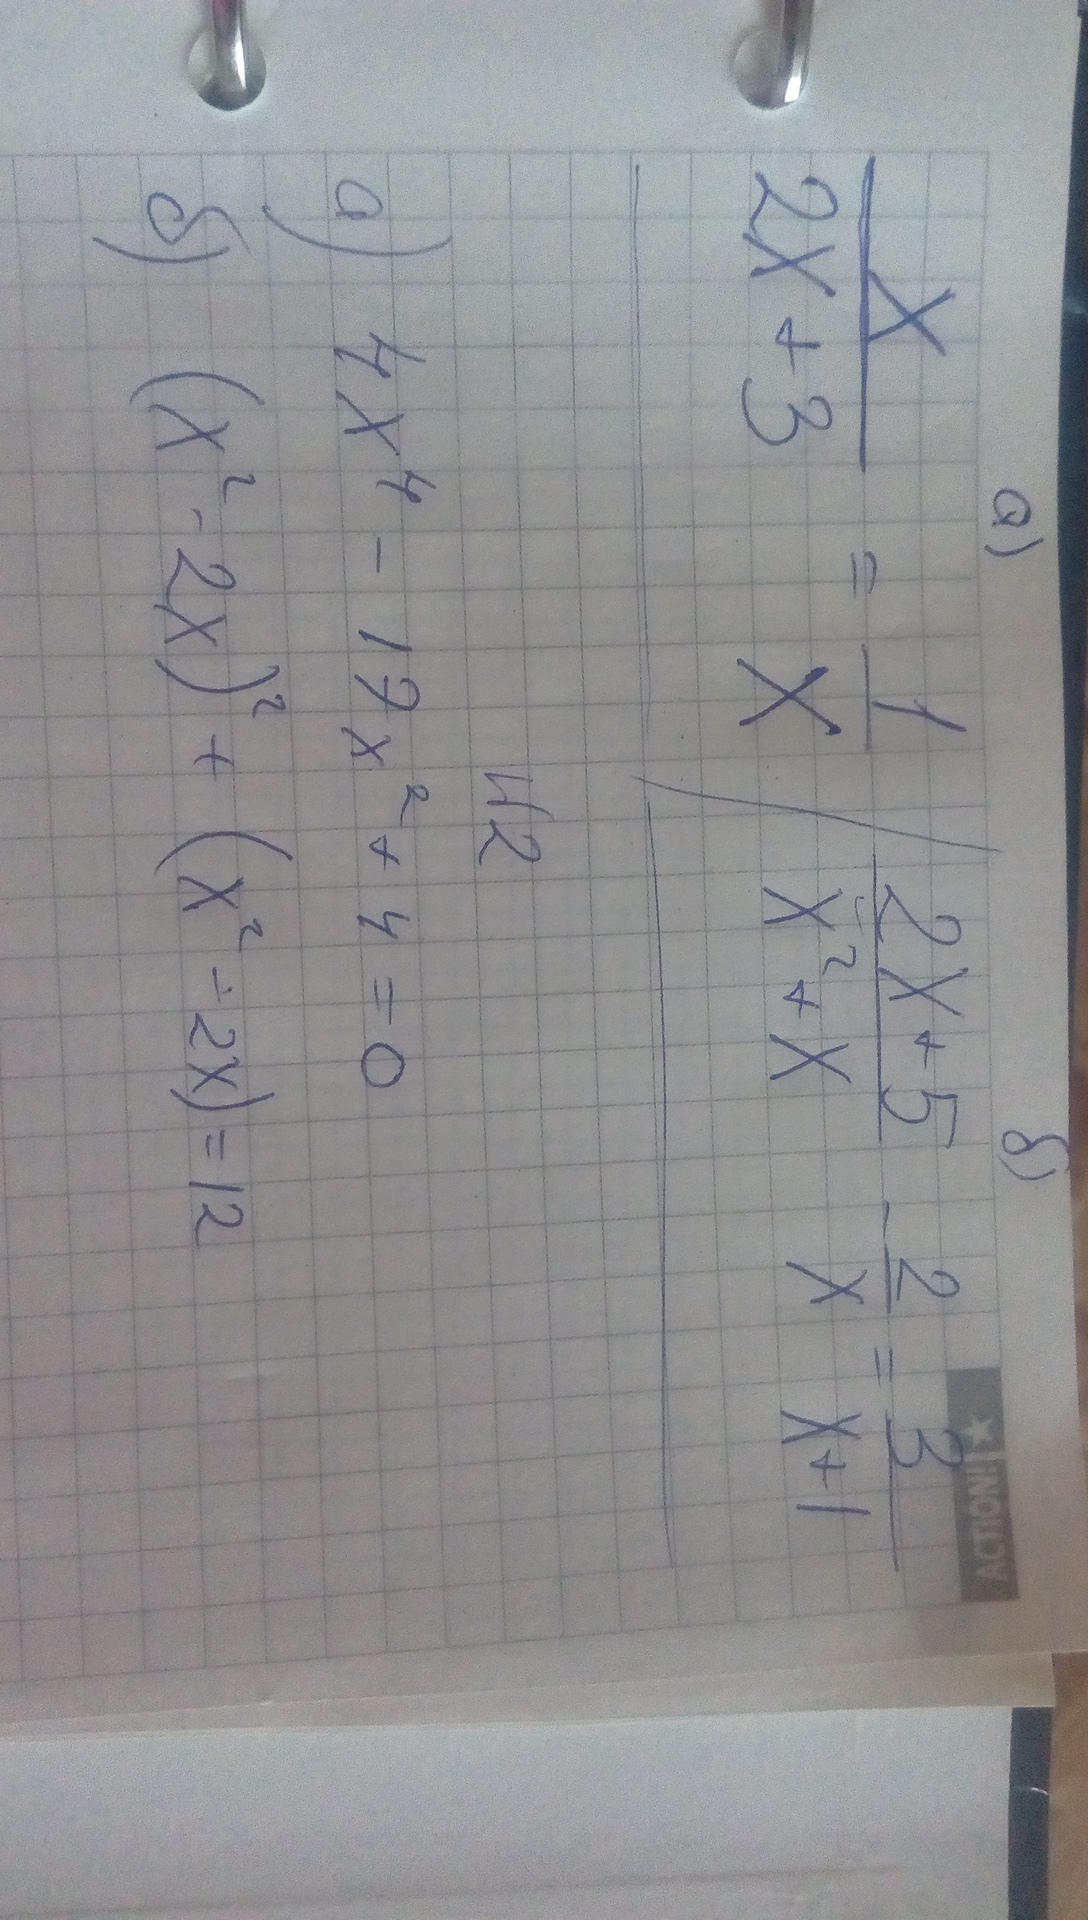 а) б)
x/(2x+3) = 1/x (2x+5)/(x²+x) - 2/x = 3/(x+1)
ACTION!
№2
а) 4x⁴ - 17x² + 4 = 0
б) (x² - 2x)² + (x² - 2x) = 12